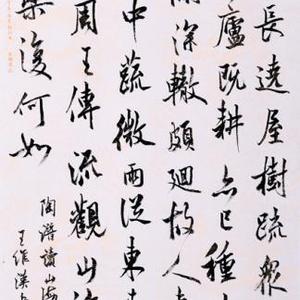 長遶屋樹疏眾
廬既耕亦已種
深轍頗迴故人
中蔬微雨從東
周王傳流觀山
樂復何如
陶潛讀山海
王作漢